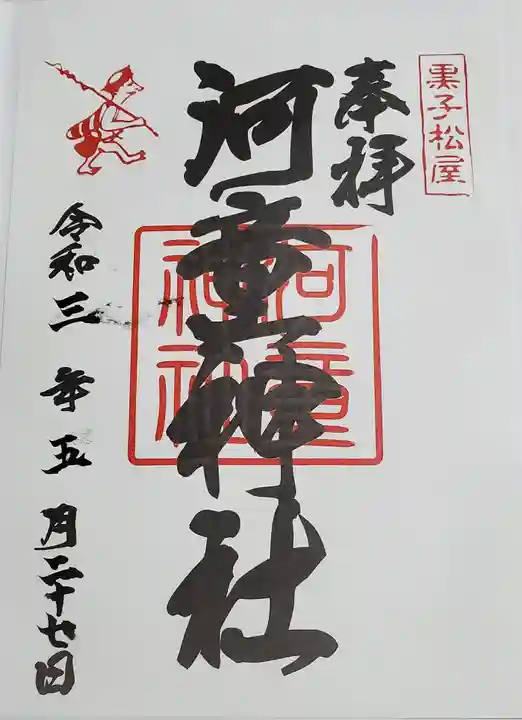 黒子松屋
奉拝
河童神社
河童
神社
令和三年五月二十七日